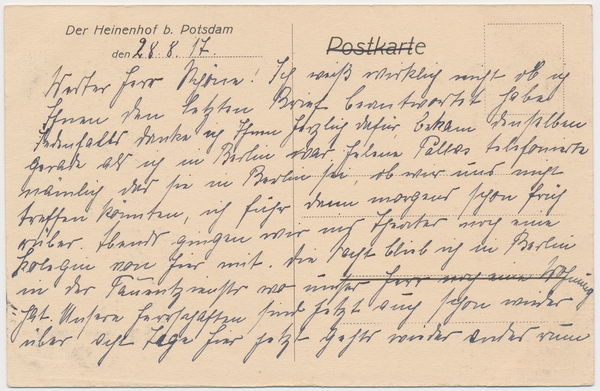 Der Heinenhof b. Potsdam
Postkarte
den 28.8.17.
Werter Herr Schöne! Ich weiß wirklich nicht ob ich
Ihnen den letzten Brief beantwortet habe
Jedenfalls danke ich Ihnen herzlich dafür, bekam denselben
gerade als ich in Berlin war, Helene telefonierte
nämlich das sie in Berlin sei, ob wir uns nicht
treffen könnten, ich fuhr dann morgens schon früh
rüber. Abends gingen wir ins Theater noch eine
Kolegin von hier mit. Die Nacht blieb ich in Berlin
in der Tauentzienstr wo unser Herr noch eine Wohnung
hat. Unsere Herrschaften sind jetzt auch schon wieder
über acht Tage hier jetzt gehts wieder anders rum